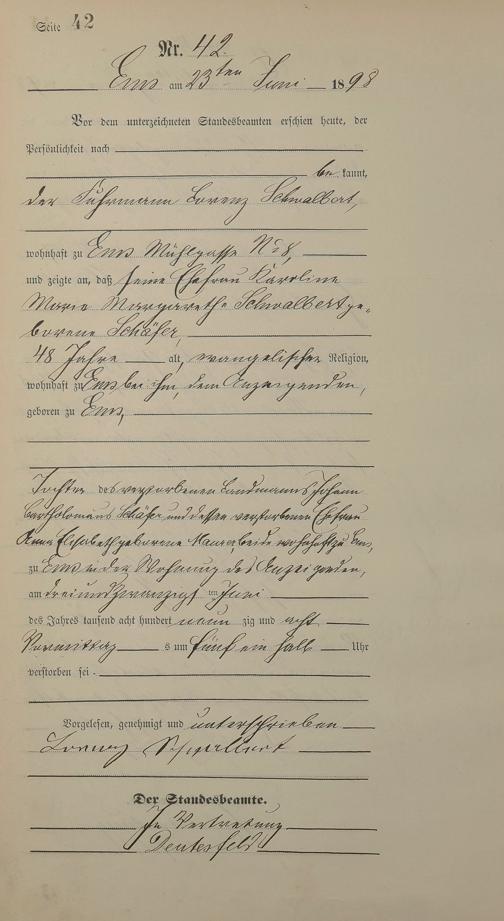 Seite 42
Nr. 42.
Ems am 23ten Juni 1898
Vor dem unterzeichneten Standesbeamten erschien heute, der
Persönlichkeit nach
be kannt,
der Fuhrmann Lorenz Schwalbert,
wohnhaft zu Ems Mühlgasse No 8,
und zeigte an, daß seine Ehefrau Karoline
Marie Margarethe Schwalbert ge-
borene Schäfer,
48 Jahre alt, evangelischer Religion,
wohnhaft zu Ems, bei ihm, dem Anzeigenden,
geboren zu Ems,
Tochter des verstorbenen Landmanns Johann
Bartholomäus Schäfer und dessen verstorbenen Ehefrau
Anna Elisabeth geborene beide wohnhaft zu Ems,
zu Ems in der Wohnung des Anzeigenden,
am dreiundzwanzigsten Juni
des Jahres tausend acht hundert neun zig und acht
Vormittag s um fünf ein halb Uhr
verstorben sei.
Vorgelesen, genehmigt und unterschrieben
Lorenz Schwalbert
Der Standesbeamte.
In Vertretung
Deutesfeld